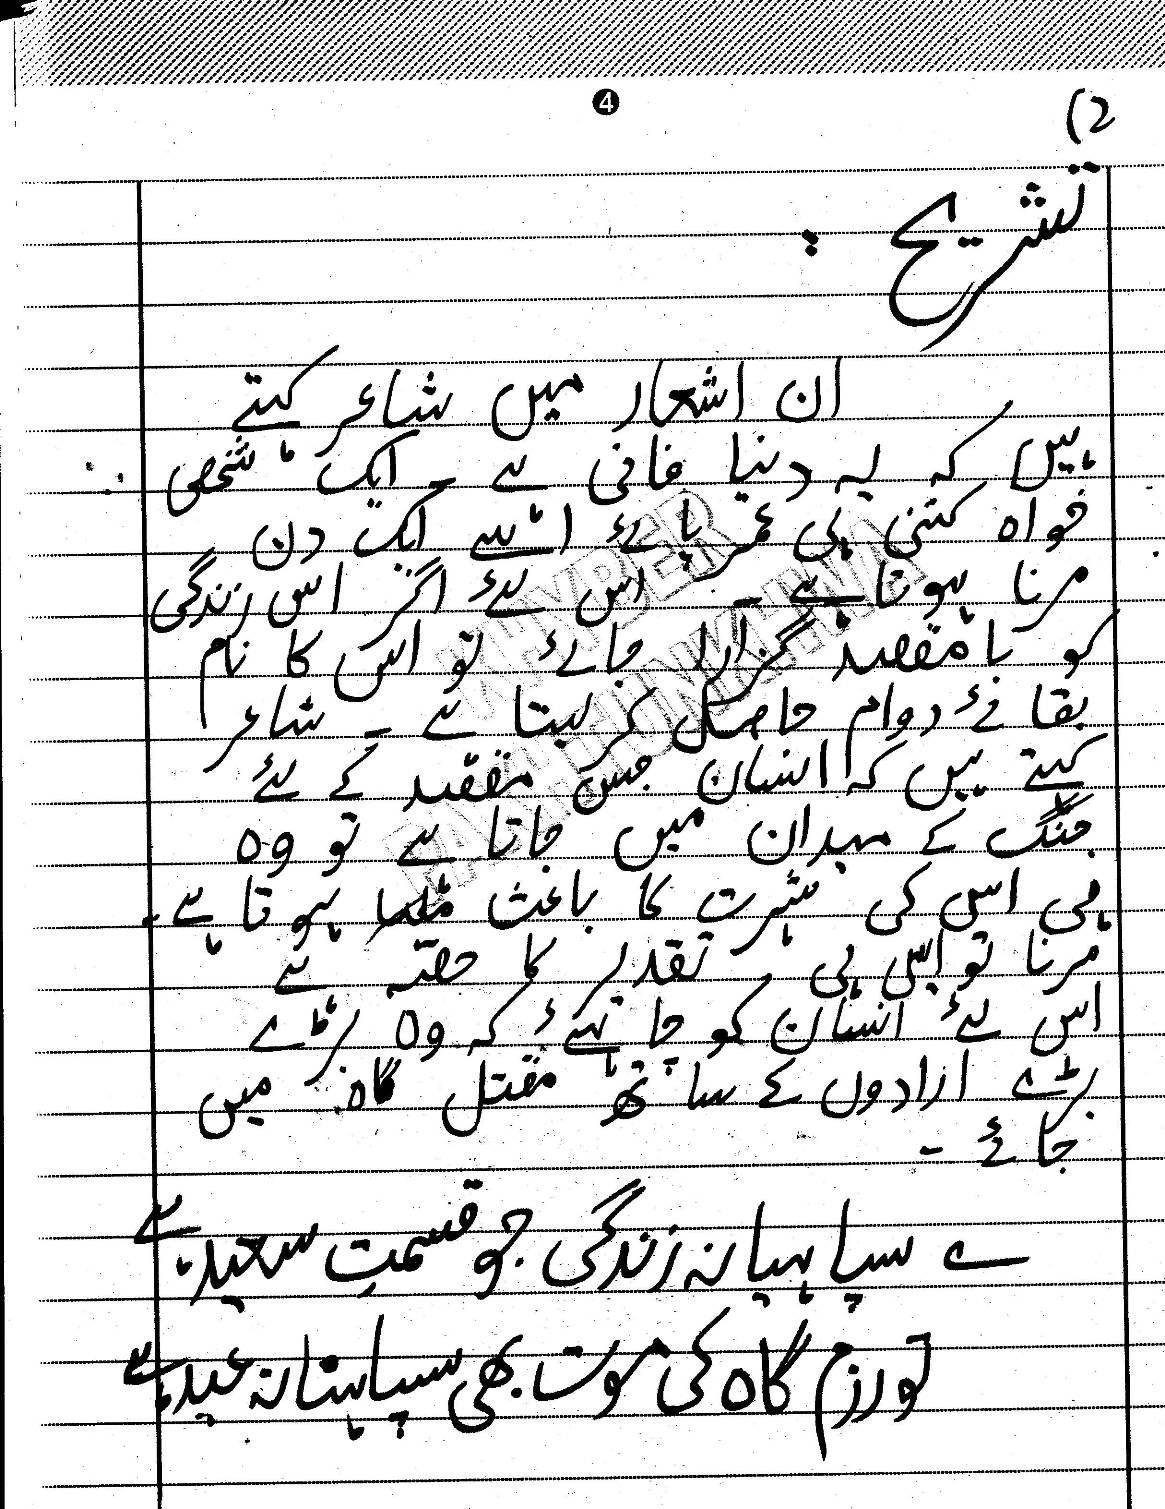 4
(2
تشریح :
ان اشعار میں شاعر کہتے
ہیں کہ یہ دنیا فانی ہے ۔ ایک شخص
خواہ کتنی ہی عمر پائے اسے ایک دن
مرنا ہوتا ہے ۔ اس لئے اگر اس زندگی
کو بامقصد گزارا جائے تو اس کا نام
بقائے دوام حاصل کر لیتا ہے ۔ شاعر
کہتے ہیں کہ انسان جس مقصد کے لئے
جنگ کے میدان میں جاتا ہے تو وہ
ہی اس کی شہرت کا باعث ہوتا ہے ۔
مرنا تو ہی تقدیر کا حصّہ ہے
اس لئے انسان کو چاہیئے کہ وہ بڑے
بڑے ارادوں کے ساتھ مقتل گاہ میں
جائے ۔
ے سپاہیانہ زندگی جو قسمتِ سعید ہے
تو رزم گاہ کی موت بھی سپاہیانہ عید ہے
KHYBER
PAKHTUNKHWA